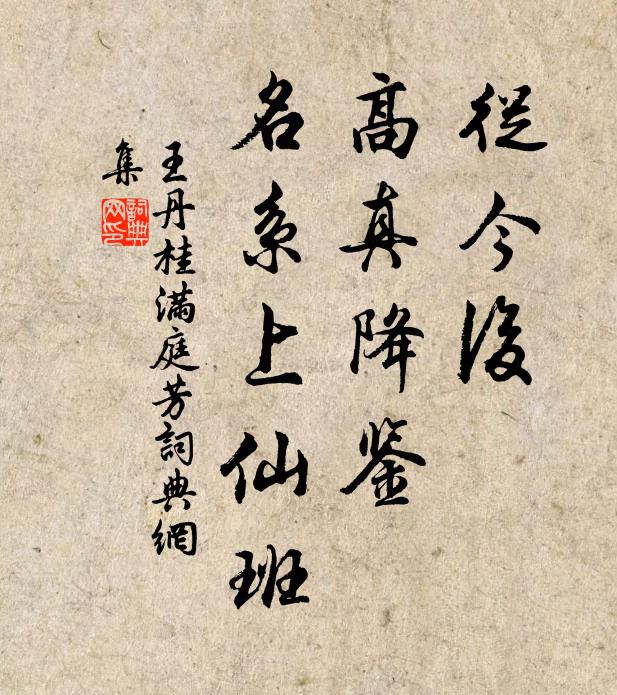 從今後
高真降鑒
名系上仙班
王丹桂滿庭芳詞典網
集
詞典
网印